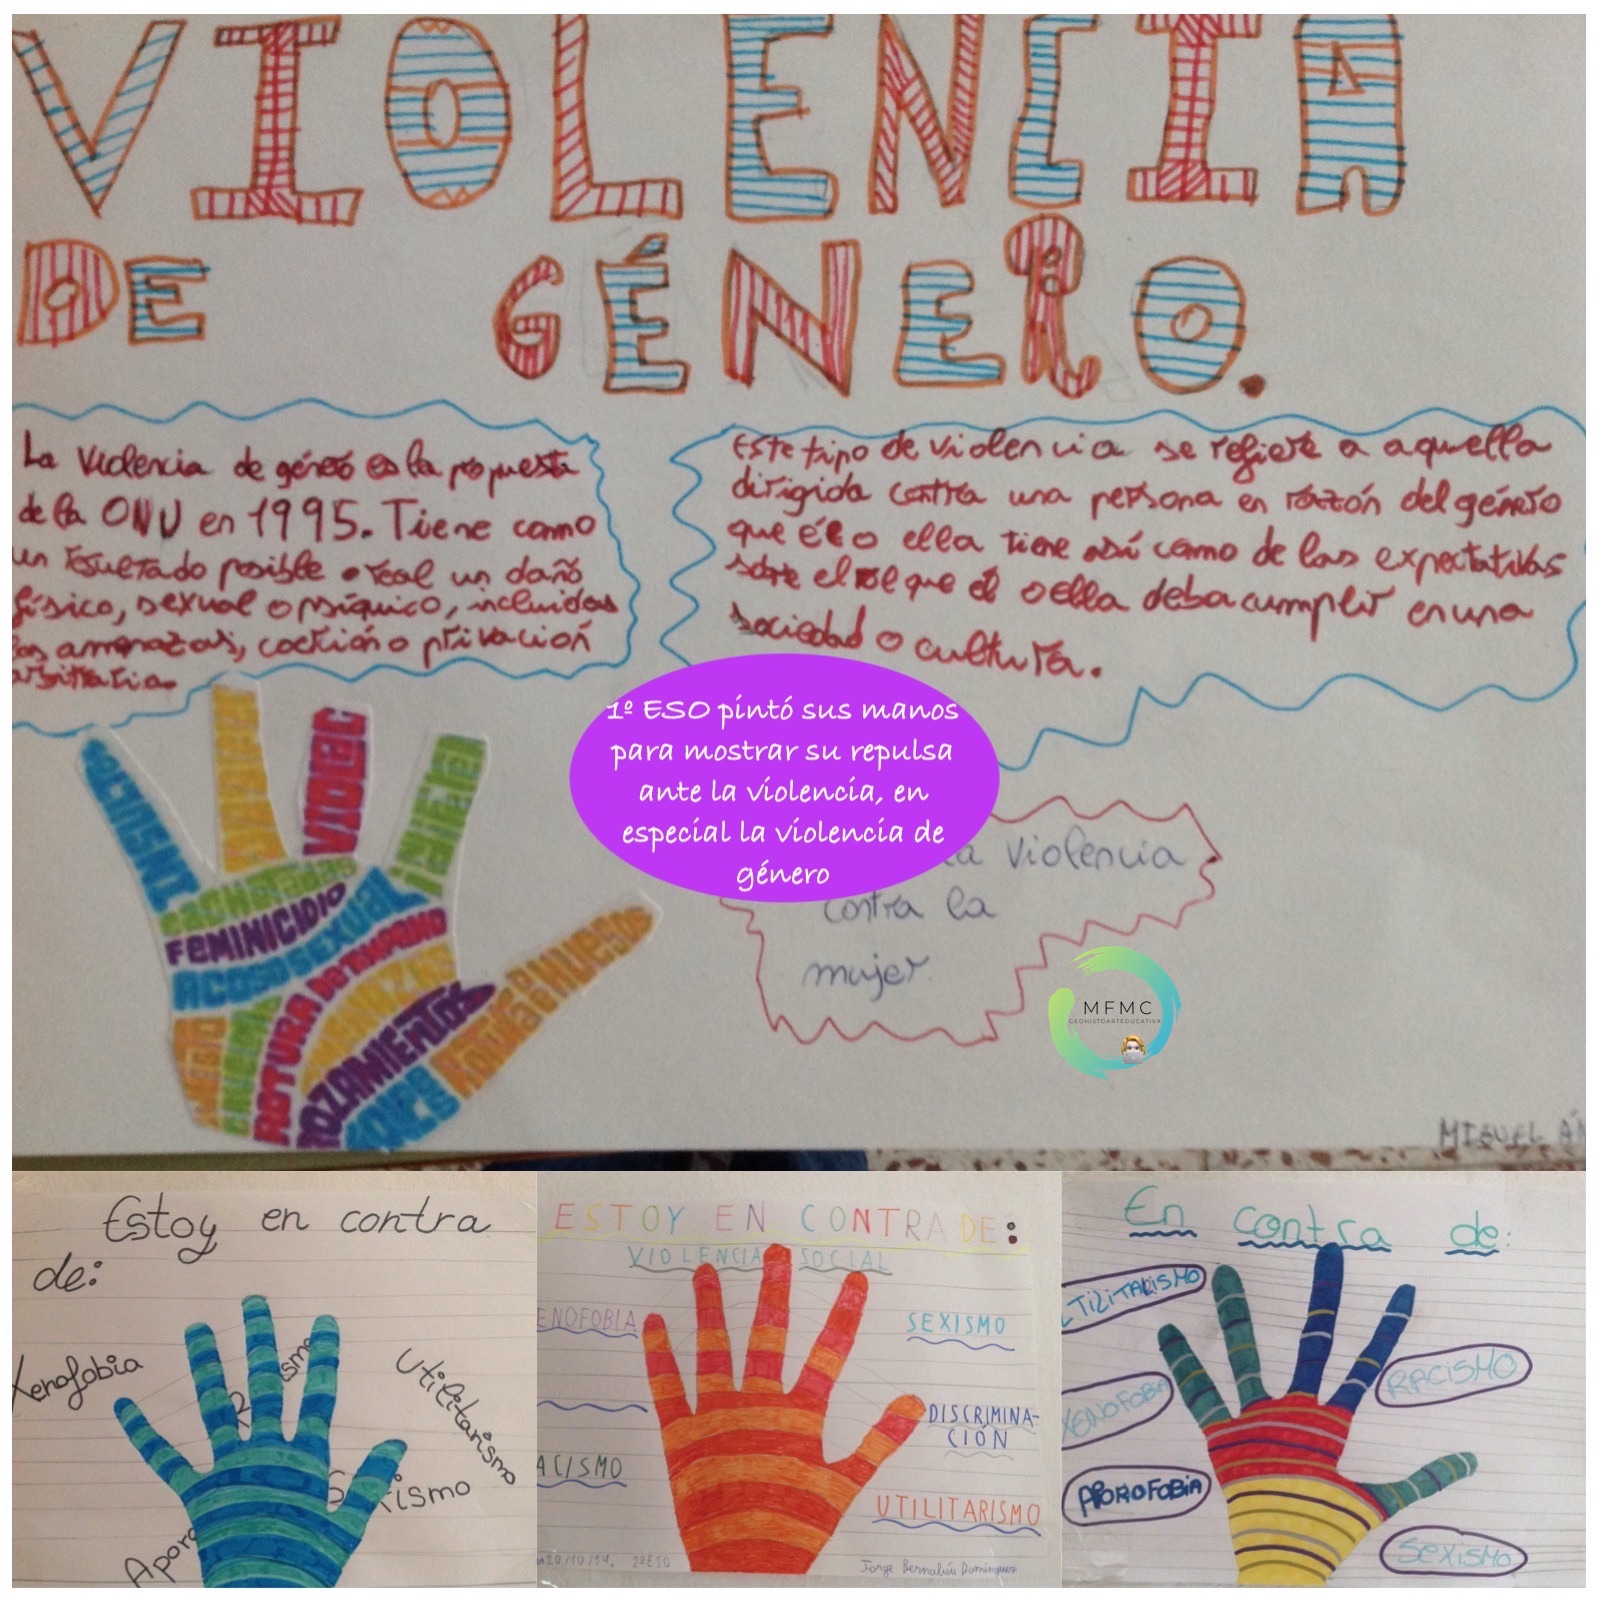 VIOLENCIA
DE GÉNERO.
La violencia de género es la propuesta
de la ONU en 1995. Tiene como
un resultado posible o real un daño
físico, sexual o psíquico, incluidas
las amenazas, coerción o privación
arbitraria.
Este tipo de violencia se refiere a aquella
dirigida contra una persona en razón del género
que él o ella tiene así como de las expectativas
sobre el rol que él o ella deba cumplir en una
sociedad o cultura.
1º ESO pintó sus manos
para mostrar su repulsa
ante la violencia, en
especial la violencia de
género
la violencia
contra la
mujer.
MFMC
GEOHISTOARTEDUCATIVA
FEMINICIDIO
ACOSO SEXUAL
ROTURA DE TIMPANO
ROTURA DE HUESOS
MIGUEL ÁN
Estoy en contra
de:
Xenofobia
Utilitarismo
Sexismo
Aporo
ESTOY EN CONTRA DE:
VIOLENCIA SOCIAL
ENOFOBIA
SEXISMO
DISCRIMINA-
CIÓN
ACISMO
UTILITARISMO
20/10/14. 2ºESO
Jorge Bernabéu Domínguez
En contra de:
TILITALISMO
XENOFOBIA
RACISMO
APOROFOBIA
SEXISMO